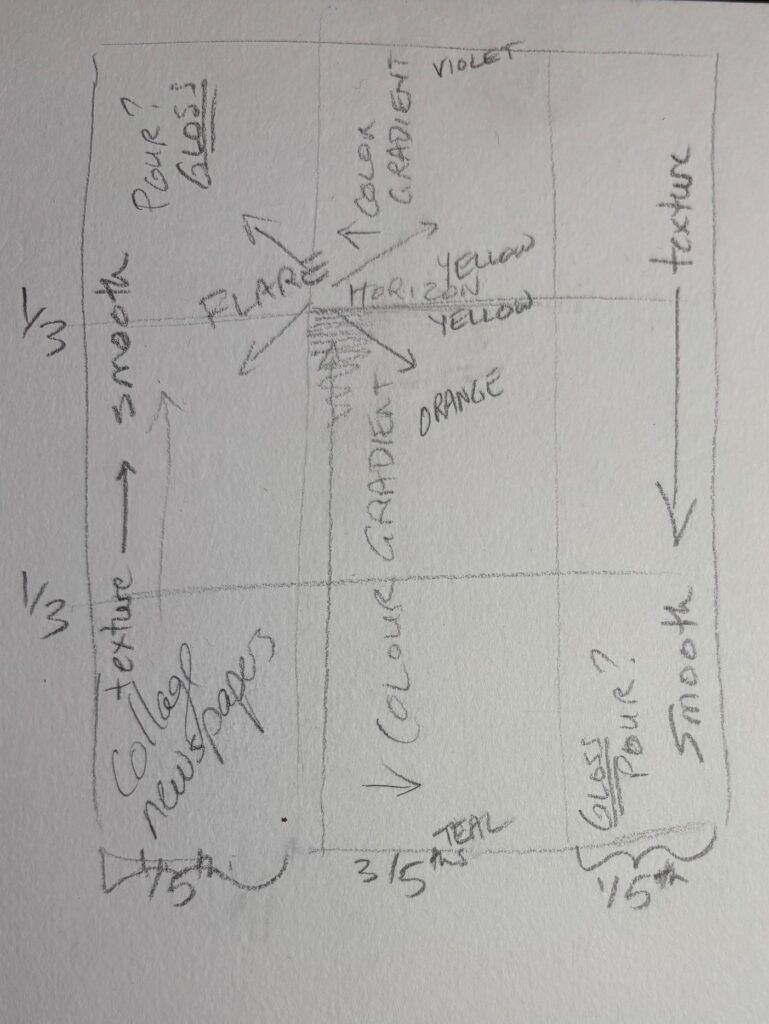 VIOLET
POUR?
GLOSS
COLOR
GRADIENT
texture → smooth
texture → smooth
FLARE
YELLOW
HORIZON
YELLOW
1/3
ORANGE
COLOUR GRADIENT
1/3
Collage
newspapers
GLOSS
POUR?
TEAL
1/5th
3/5ths
1/5th